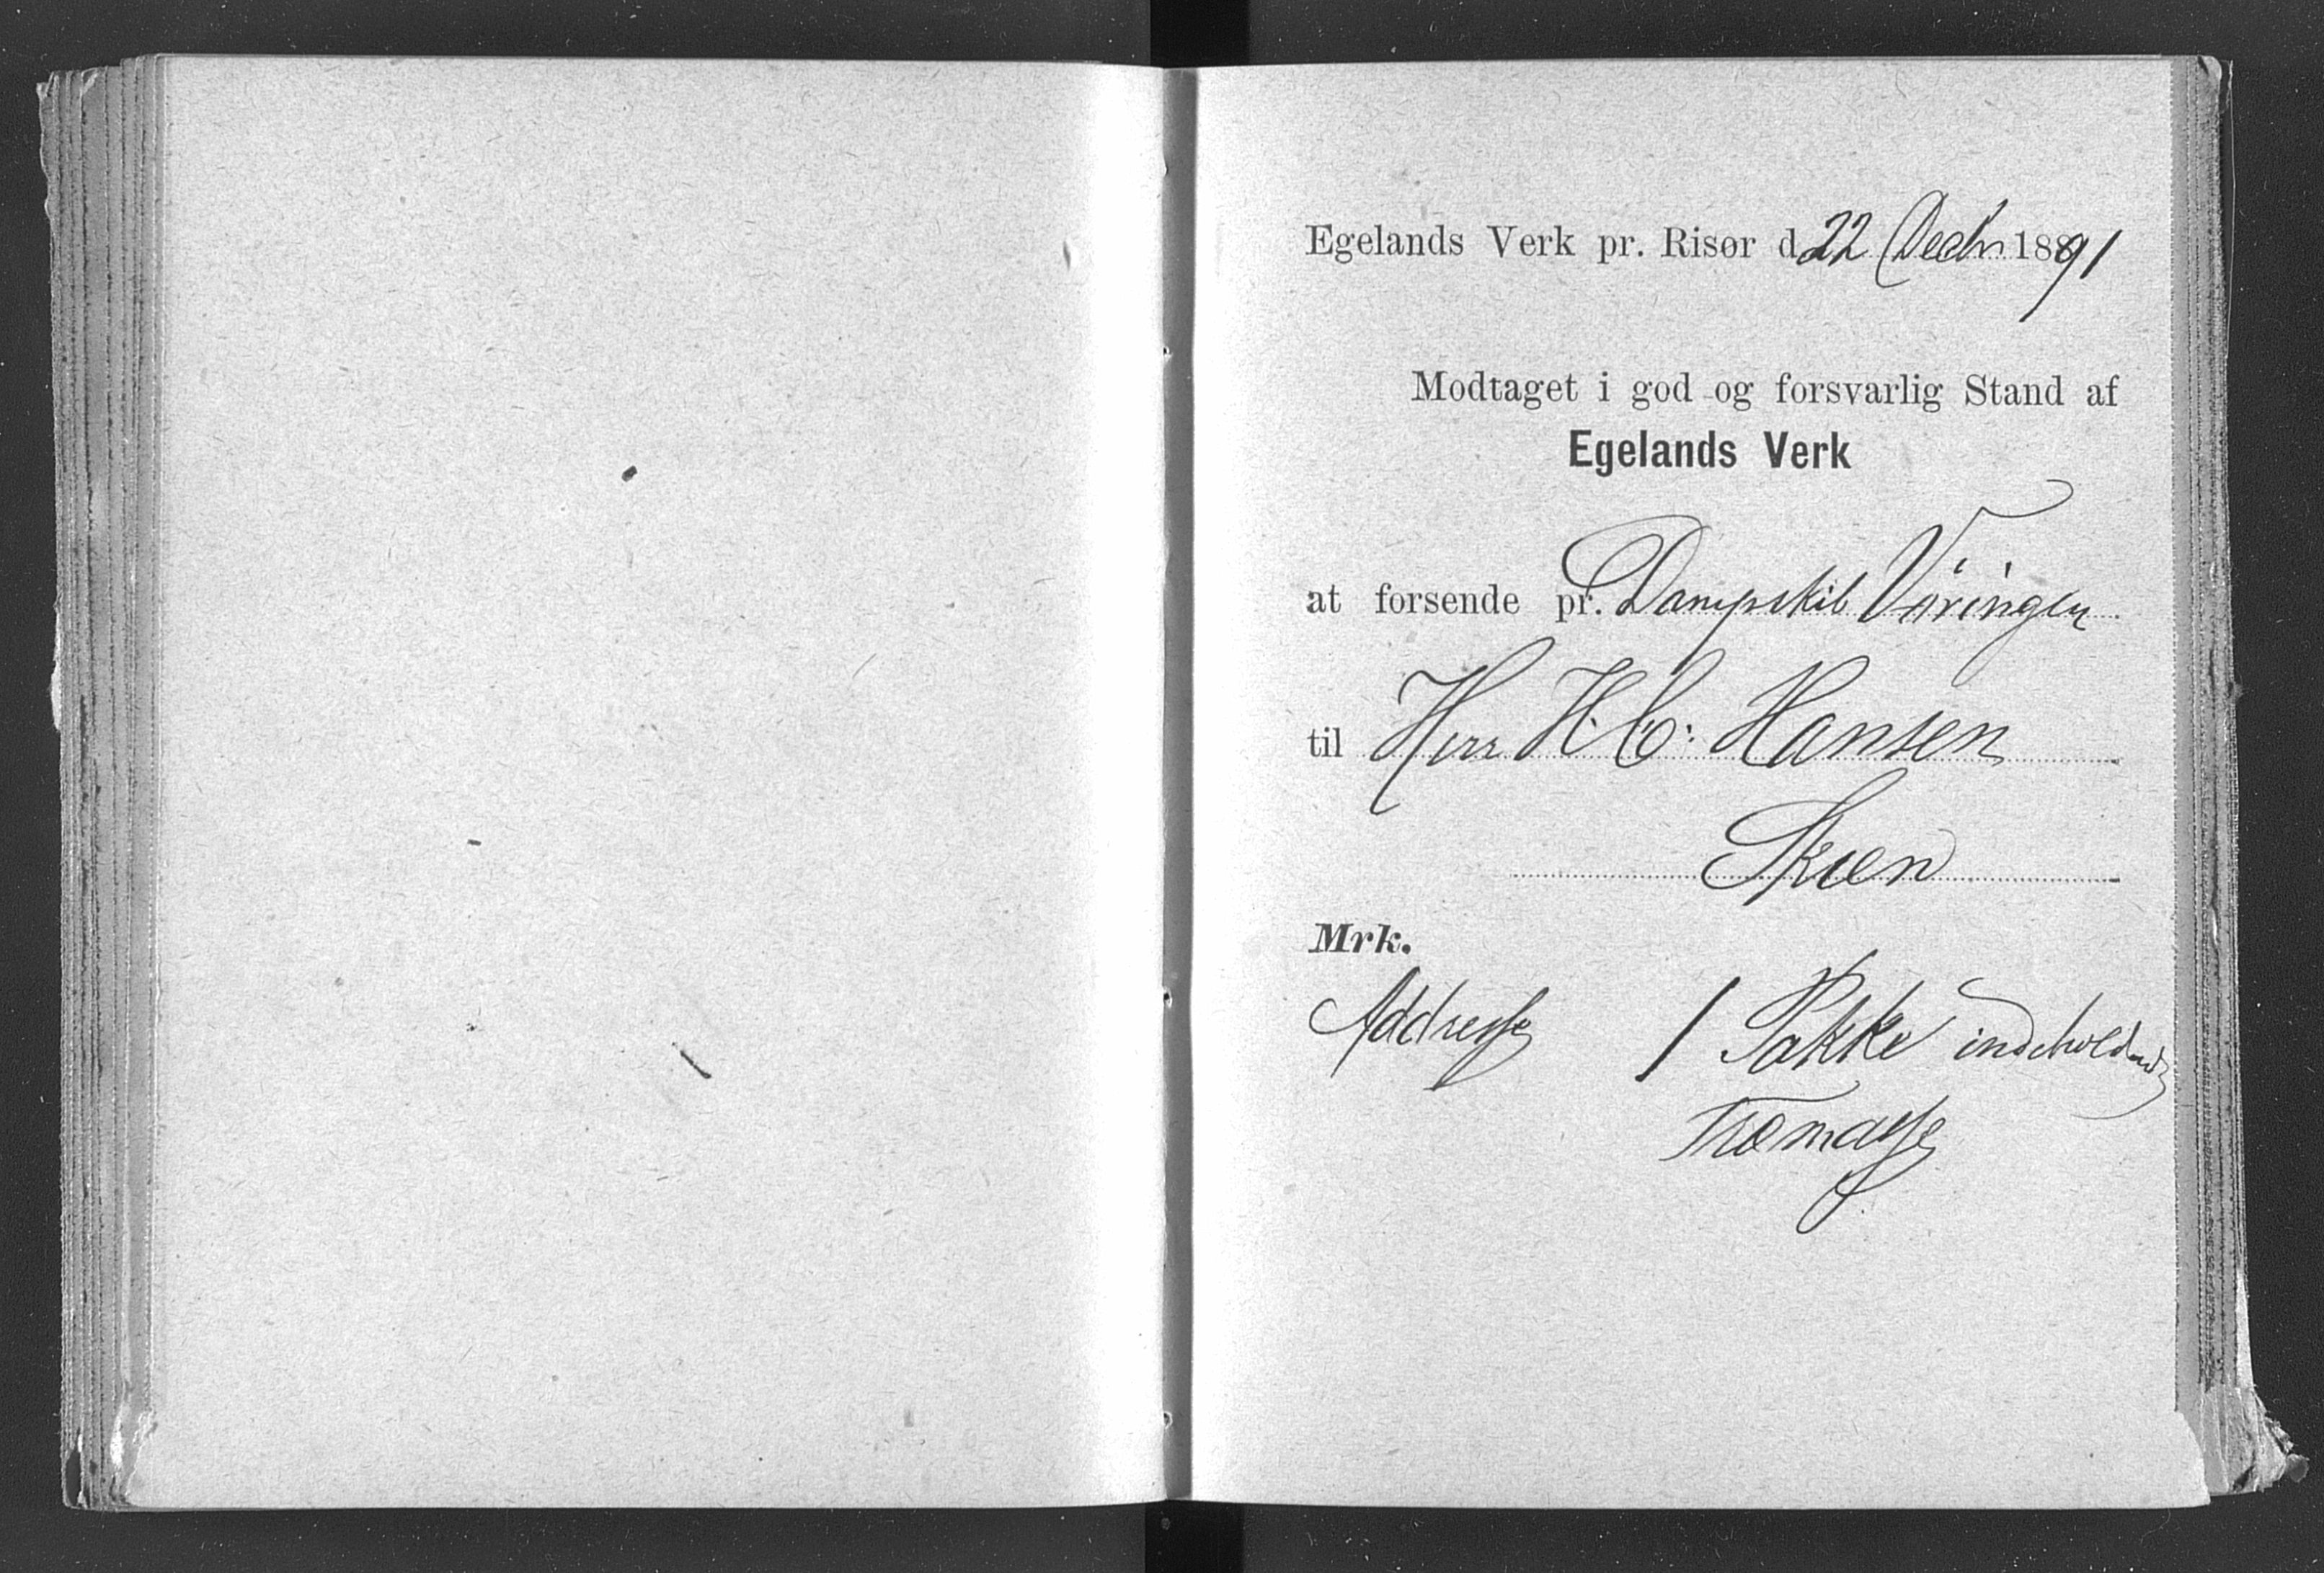 Egelands Verk pr. Risør d. 22 Decbr 1891
Modtaget i god og forsvarlig Stand af
Egelands Verk
at forsende pr. Dampskib Væringen
til Herr H. C. Hansen
Skien
Mrk.
Addresse 1 Pakke indeholdende
Træmasse